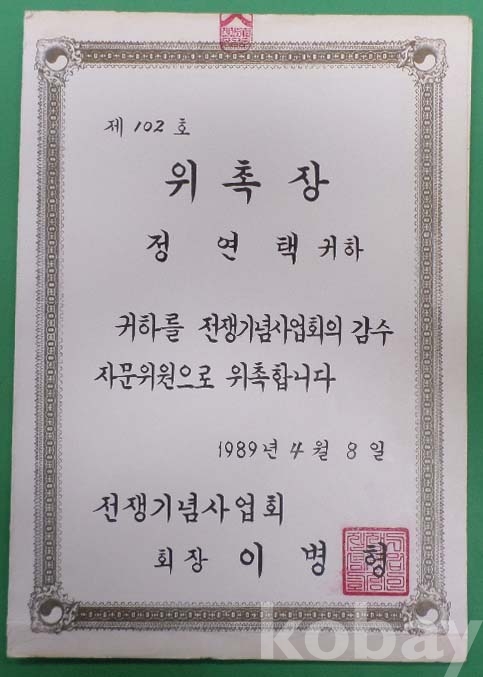 제 102 호
위 촉 장
정 연 택 귀하
귀하를 전쟁기념사업회의 감수
자문위원으로 위촉합니다
1989년 4월 8일
전쟁기념사업회
회장 이 병 형
kobay